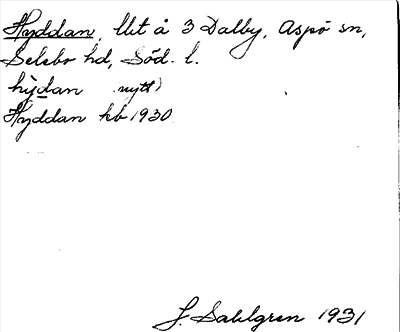 Hyddan, lht å 3 Dalby, Aspö sn,
Selebo hd, Söd. l.
hỳdan nytt)
Hyddan kb 1930.
J. Sahlgren 1931